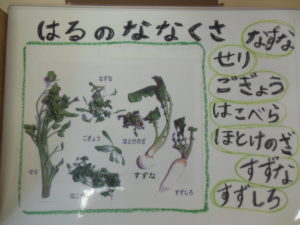 はるのななくさ
なずな
せり
ごぎょう
はこべら
ほとけのざ
すずな
すずしろ
なずな
ごぎょう
ほとけのざ
せり
すずな
すずしろ